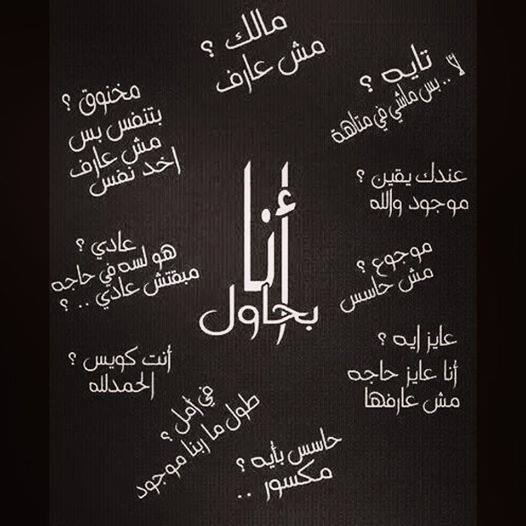 مالك ؟
مش عارف
تايه ؟
لأ .. بس ماشي في متاهة
عندك يقين ؟
موجود والله
موجوع ؟
مش حاسس
عايز ايه ؟
أنا عايز حاجه
مش عارفها
حاسس بأيه ؟
مكسور ..
في أمل ؟
طول ما ربنا موجود
أنت كويس ؟
الحمدلله
عادي ؟
هو لسه في حاجه
مبقتش عادي .. ؟
مخنوق ؟
بتنفس بس
مش عارف
اخد نفس
أنا
بحاول